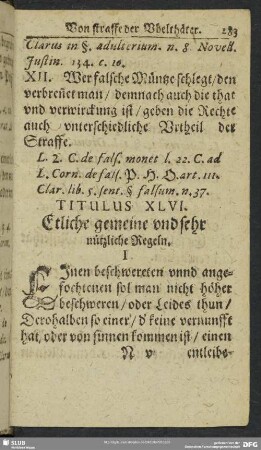 Von straffe der Vbelthäter. 283
Clarus in §. adulterium. n. 8 Novell.
Justin. 134. c. 10.
XII. Wer falsche Müntze schlegt/ den
verbreñet man/ demnach auch die that
vnd verwirckung ist/ geben die Rechte
auch vnterschiedliche Vrtheil der
Straffe.
L. 2. C. de fals. monet l. 22. C. ad
L. Corn. de fals. P. H. O. art. 111.
Clar. lib. 5. sent. § falsum. n. 37.
TITULUS XLVI.
Etliche gemeine vnd sehr
nützliche Regeln.
I
EInen beschwereten vnnd ange-
fochtenen sol man nicht höher
beschweren/ oder Leides thun/
Derohalben so einer/ d' keine vernunfft
hat/ oder von sinnen kommen ist/ einen
N v entleibe-
SLUB
DFG